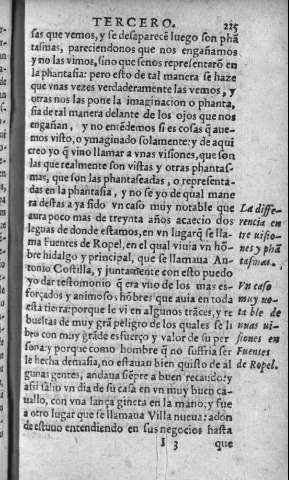 TERCERO. 225
sas que vemos, y se desaparecẽ luego son phã
tasmas, pareciendonos que nos engañamos
y no las vimos, sino que se nos representarõ en
la phantasia: pero esto de tal manera se haze
que vnas vezes verdaderamente las vemos, y
otras nos las pone la imaginacion o phanta,
sia de tal manera delante de los ojos que nos
engañan, y no entẽdemos si es cosas q̃ aue-
mos visto, o ymaginado solamente: y de aqui
creo yo q̃ vino llamar a vnas visiones, que son
las que realmente son vistas y otras phantas-
mas, que son las phantaseadas, o representa-
das en la phantasia, y no se yo de qual mane
ra destas a ya sido vn caso muy notable que
aura poco mas de treynta años acaecio dos
leguas de donde estamos, en vn lugar q̃ se lla-
ma Fuentes de Ropel, en el qual viuia vn hõ-
bre hidalgo y principal, que se llamaua An-
tonio Costilla, y juntamente con esto puedo
yo dar testimonio q̃ era vno de los mas es-
forçados y animosos hõbres que auia en toda
esta tierra: porque le vi en algunos trãces, y re
bueltas de muy grã peligro de los quales se li
bro con muy grãde esfuerço y valor de su per
sona: y porque como hombre q̃ no sufria ser
le hecha demasia, no estauan bien quisto de al
gunas gentes, andaua siẽpre a buen recaudo: y
assi salio vn dia de su casa en vn muy buen ca-
uallo, con vna lança gineta en la mano: y fue
a otro lugar que se llamaua Villa nueua: adon
de estuuo entendiendo en sus negocios hasta
I 3 que
La diffe-
rencia en
tre visio-
nes y phã
tasmas.
Vn caso
muy no-
table de
vnas vi-
siones en
Fuentes
de Ropel.